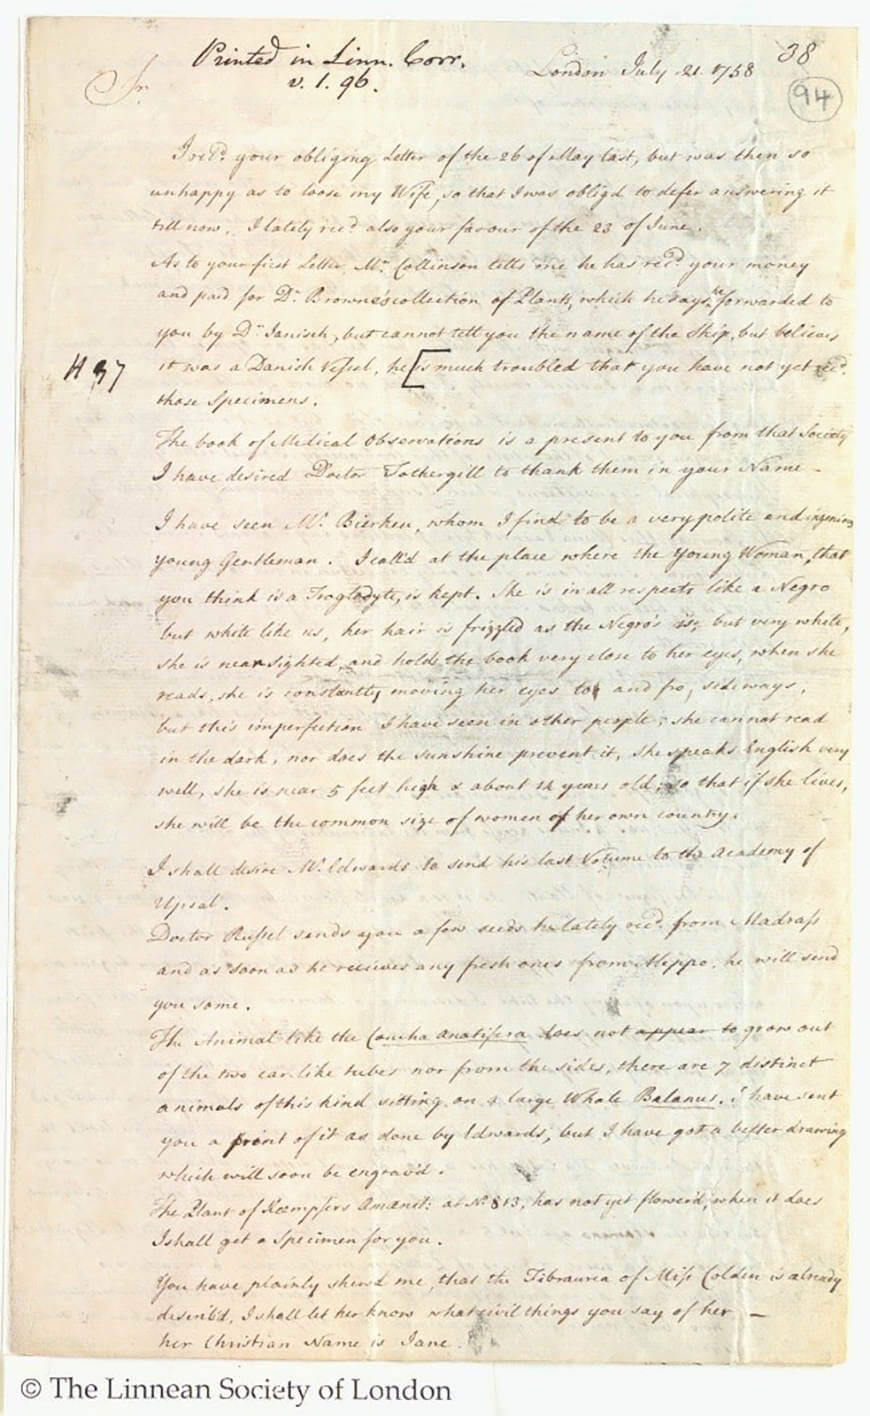 Printed in Linn. Corr.
v. 1. 96.
38
94
Sr.
London July 21. 1758
I recd. your obliging Letter of the 26 of May last, but was then so
unhappy as to loose my Wife, so that I was obligd to defer answering it
till now. I lately recd also your favour of the 23 of June.
As to your first Letter, Mr. Collinson tells me he has recd your money
and paid for Dr. Browne's collection of Plants, which he says he forwarded to
you by Dr. Janish, but cannot tell you the name of the Ship, but believes
H 37
it was a Danish Vessel, he [is much troubled that you have not yet recd.
those Specimens.
The book of Medical Observations is a present to you from that Society
I have desired Doctor Fothergill to thank them in your Name –
I have seen Mr. Bierken, whom I find to be a very polite and ingenious
young Gentleman. I call'd at the place where the Young Woman, that
you think is a Troglodyte, is kept. She is in all respects like a Negro
but white like us, her hair is frizzled as the Negro's is, but very white,
she is near sighted, and holds the book very close to her eyes, when she
reads, she is constantly moving her eyes to and fro, sideways,
but this imperfection I have seen in other people; she cannot read
in the dark, nor does the sunshine prevent it, she speaks English very
well, she is near 5 feet high & about 12 years old, so that if she lives,
she will be the common size of women of her own country.
I shall desire Mr. Edwards to send his last Volume to the Academy of
Upsal.
Doctor Russel sends you a few seeds he lately recd. from Madrass
and as soon as he receives any fresh ones from Aleppo, he will send
you some.
The Animal like the Concha anatifera does not appear to grow out
of the two ear-like tubes nor from the sides, there are 7 distinct
animals of this kind sitting on a large Whale Balanus. I have sent
you a print of it as done by Edwards, but I have got a better drawing
which will soon be engrav'd.
The Plant of Kœmpfers Amœnit: at No. 813, has not yet flower'd, when it does
I shall get a Specimen for you.
You have plainly shewd me, that the Fibraurea of Miss Colden is already
describ'd, I shall let her know what civil things you say of her –
her Christian Name is Jane.
© The Linnean Society of London